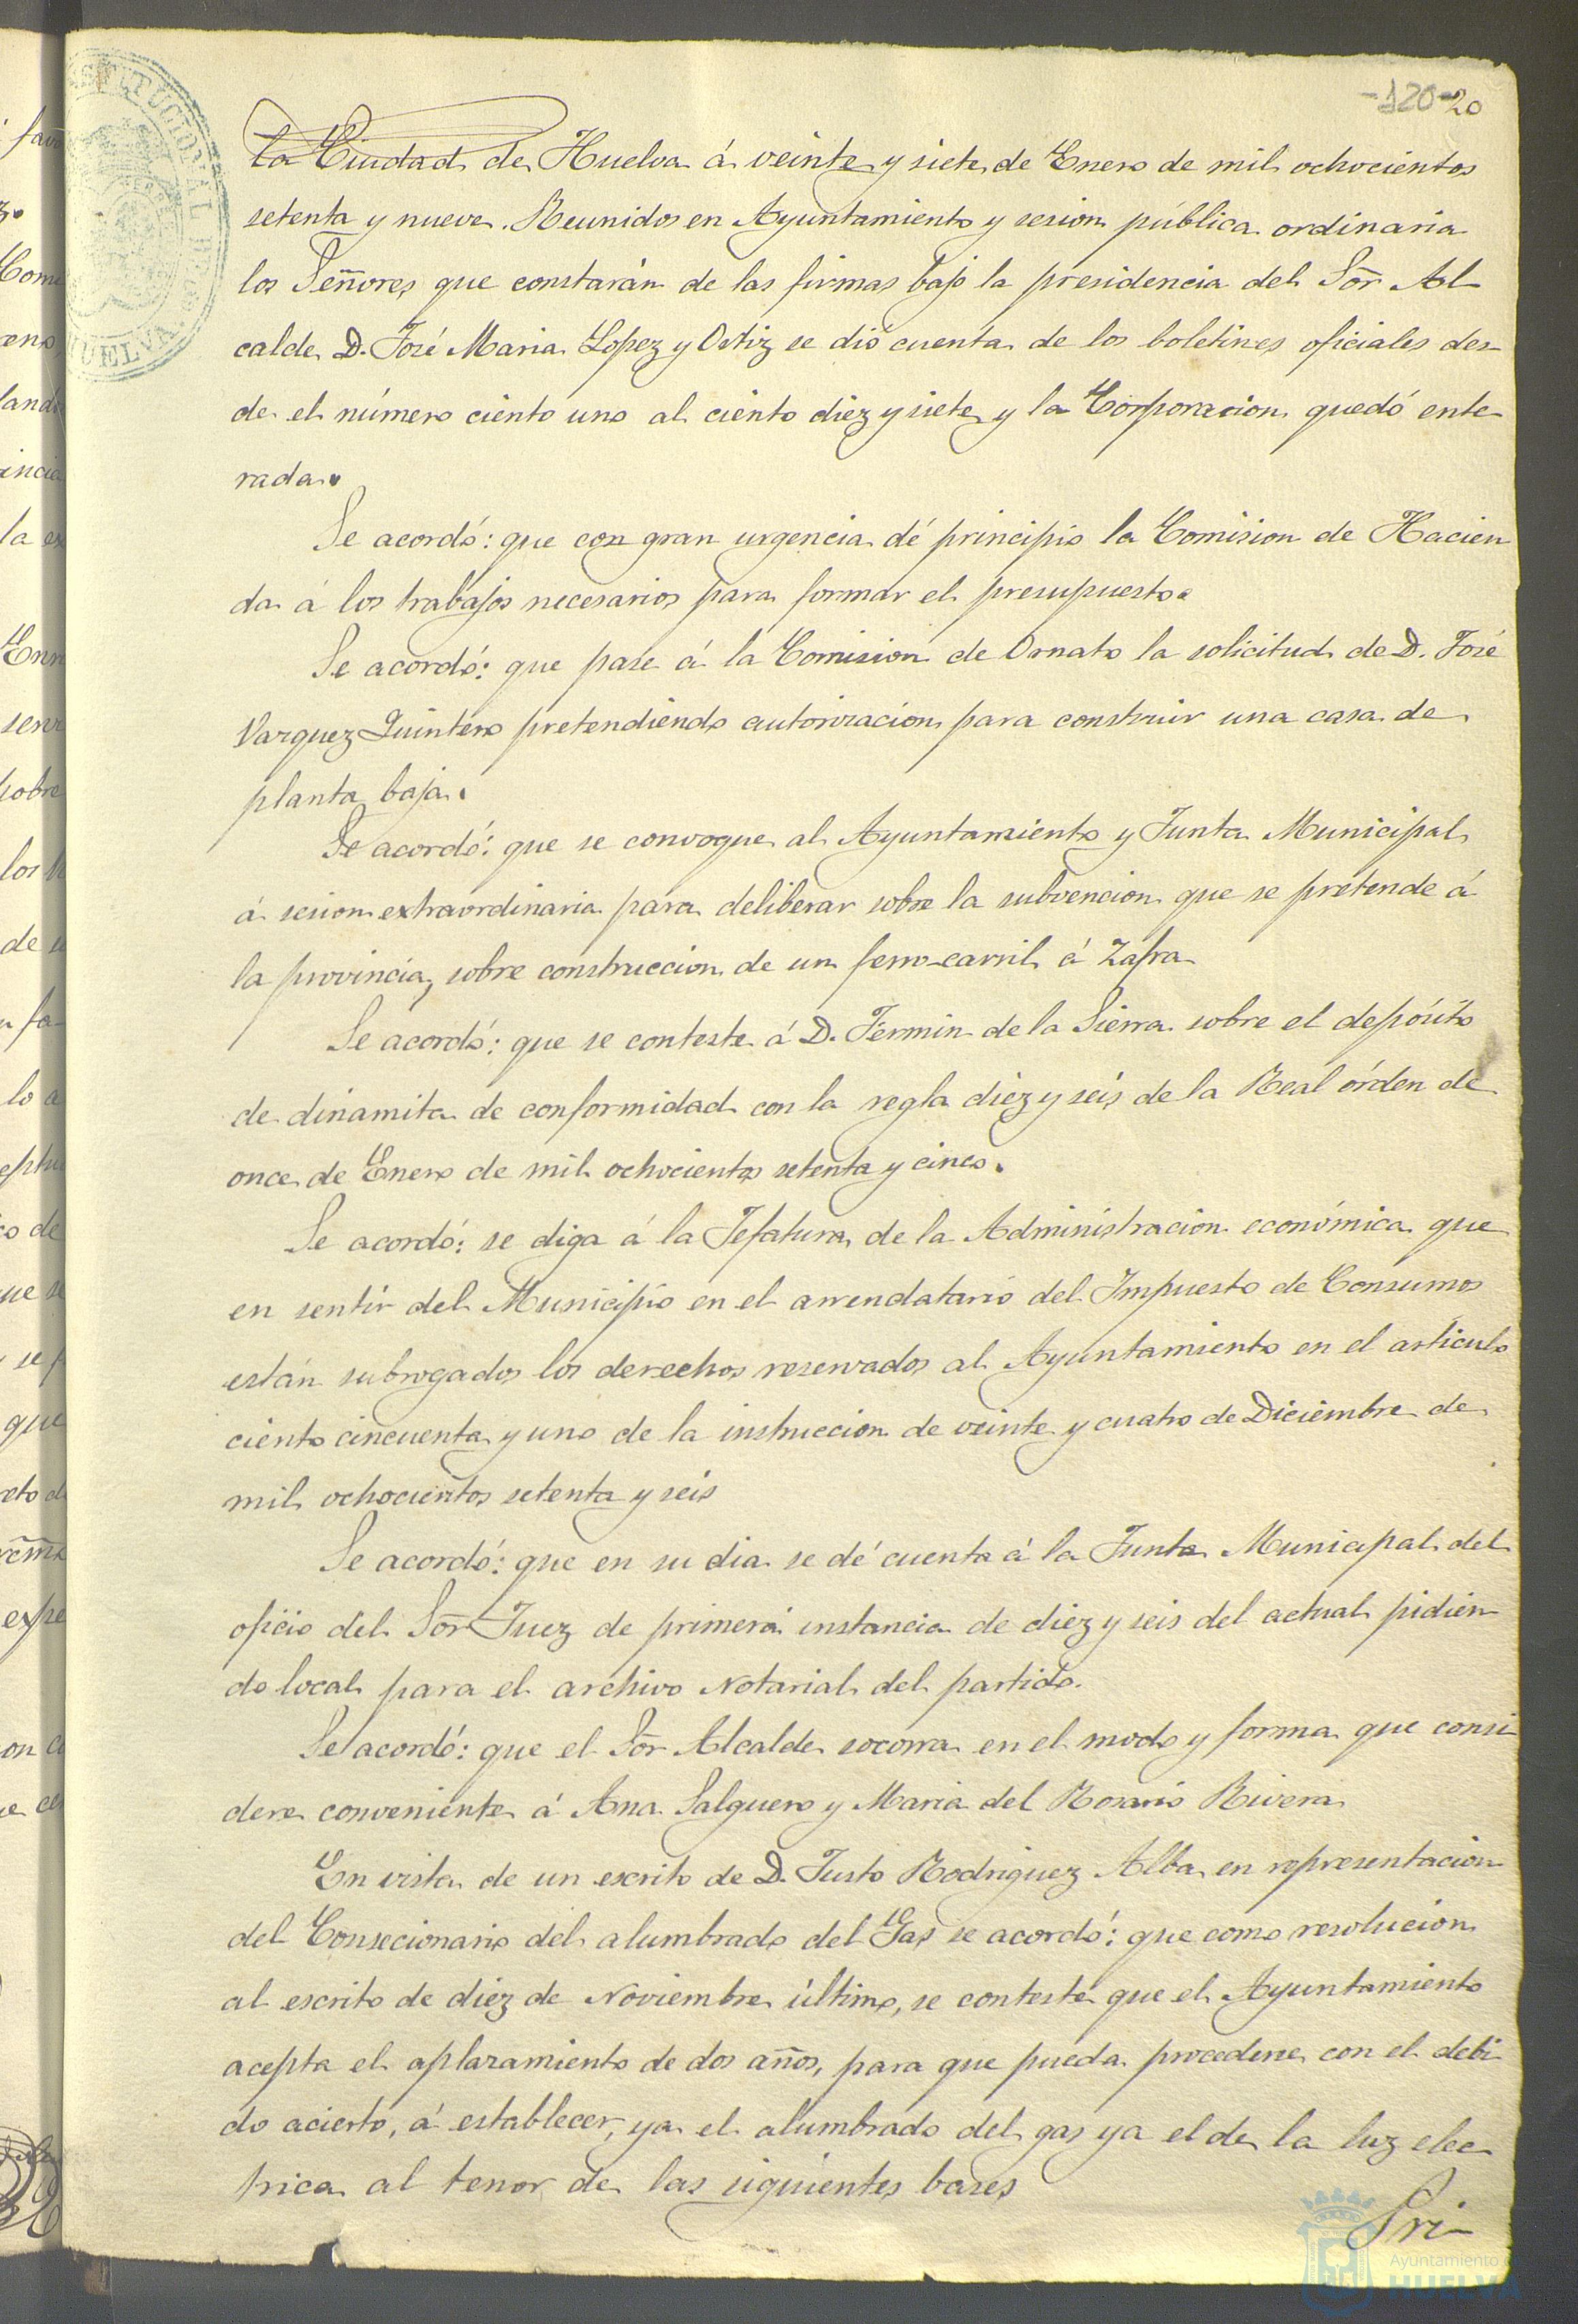 -120-20
la Ciudad de Huelva á veinte y siete de Enero de mil ochocientos
setenta y nueve. Reunidos en Ayuntamiento y sesion pública ordinaria
los Señores que constarán de las firmas bajo la presidencia del Sõr Al
calde D. José Maria Lopez y Ortiz se dió cuenta de los boletines oficiales des-
de el número ciento uno al ciento diez y siete y la Corporacion quedó ente-
rada.
Se acordó: que con gran urgencia dé principio la Comision de Hacien
da á los trabajos necesarios para formar el presupuesto.
Se acordó: que pase á la Comision de Ornato la solicitud de D. José
Vazquez Quintero pretendiendo autorizacion para construir una casa de
planta baja.
Se acordó: que se convoque al Ayuntamiento y Junta Municipal
á sesion extraordinaria para deliberar sobre la subvencion que se pretende á
la provincia, sobre construccion de un ferro-carril á Zafra
Se acordó: que se conteste á D. Fermin de la Sierra sobre el depósito
de dinamita de conformidad con la regla diez y seis de la Real órden de
once de Enero de mil ochocientos setenta y cinco.
Se acordó: se diga á la Jefatura de la Administracion económica que
en sentir del Municipio en el arrendatario del Impuesto de Consumos
están subrogados los derechos reservados al Ayuntamiento en el articulo
ciento cincuenta y uno de la instruccion de veinte y cuatro de Diciembre de
mil ochocientos setenta y seis
Se acordó: que en su dia se dé cuenta á la Junta Municipal del
oficio del Sõr Juez de primera instancia de diez y seis del actual pidien
do local para el archivo Notarial del partido.
Se acordó: que el Sõr Alcalde socorra en el modo y forma que consi
dere conveniente á Ana Salguero y Maria del Rosario Rivera
En vista de un escrito de D. Justo Rodriguez Alba en representacion
del Consecionario del alumbrado del Gas se acordó: que como resolucion
al escrito de diez de Noviembre último, se conteste que el Ayuntamiento
acepta el aplazamiento de dos años, para que pueda procederse con el debi
do acierto, á establecer, ya el alumbrado del gas ya el de la luz elec
trica al tenor de las siguientes bases
Pri-
Ayuntamiento
HUELVA